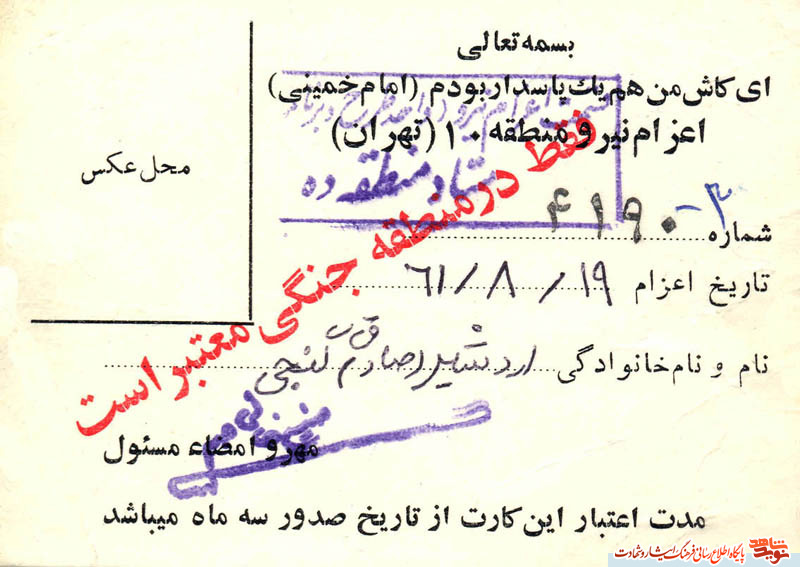 بسمه تعالی
ای کاش من هم یك پاسدار بودم (امام خمینی)
اعزام نیرو منطقه ۱۰ (تهران)
ستاد منطقه ده
محل عکس
شماره ۴۱۹۰-۳
تاریخ اعزام ۶۱/۸/۱۹
نام و نام خانوادگی اردشیر صادق لنجی
فقط در منطقه جنگی معتبر است
مهر و امضاء مسئول
مدت اعتبار این کارت از تاریخ صدور سه ماه میباشد
نوید شاهد
پایگاه اطلاع رسانی فرهنگ ایثار و شهادت